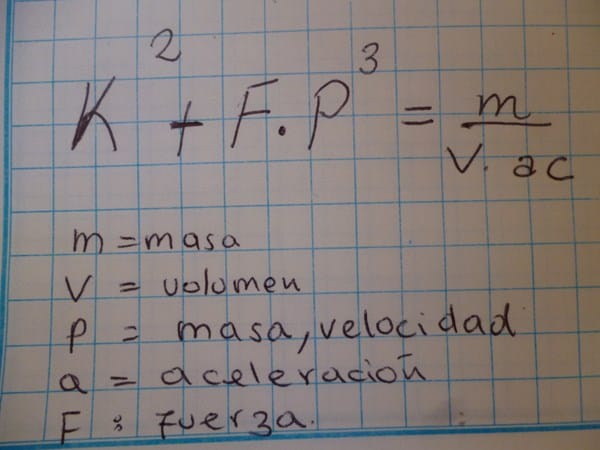 K² + F.P³ = m / V. ac
m = masa
V = volumen
P = masa, velocidad
a = aceleración
F : Fuerza.